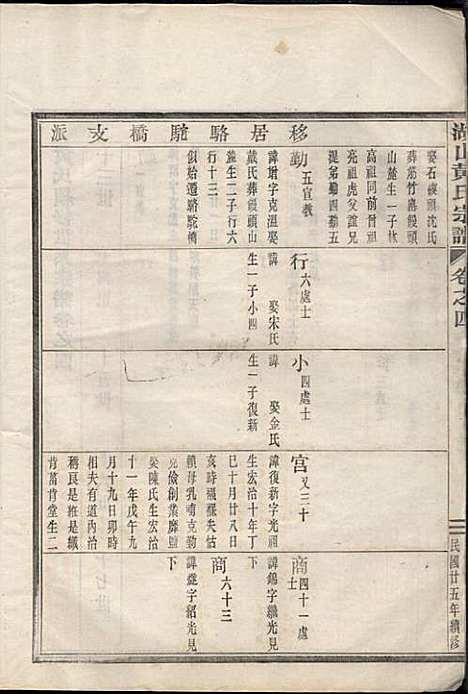 湖山黃氏宗譜
卷之四
民國廿五年續修
移居駱駝橋支派
娶石碶頭沈氏
葬茹竹菴饅頭
山麓生一子林
高祖同前曾祖
亮祖虎父誼兄
混弟錦四錦五
勤五宣教
諱埘字克溫娶
戴氏葬饅頭山
麓生二子行六
行十三
似始遷駱駝橋
行六處士
諱 娶宋氏
生一子小四
小四處士
諱 娶金氏
生一子復新
宮又三十
諱復新字光祖
生宏治十年丁
巳十月廿八日
亥時襁褓失怙
賴母乳哺克勤
克儉創業靡盬
娶陳氏生宏治
十一年戊午九
月十九日卯時
相夫有道內助
稱良是維是織
肯菑肯堂生二
商四十一處士
諱錦字繼光見
下
商六十三
諱鑑字紹光見
下